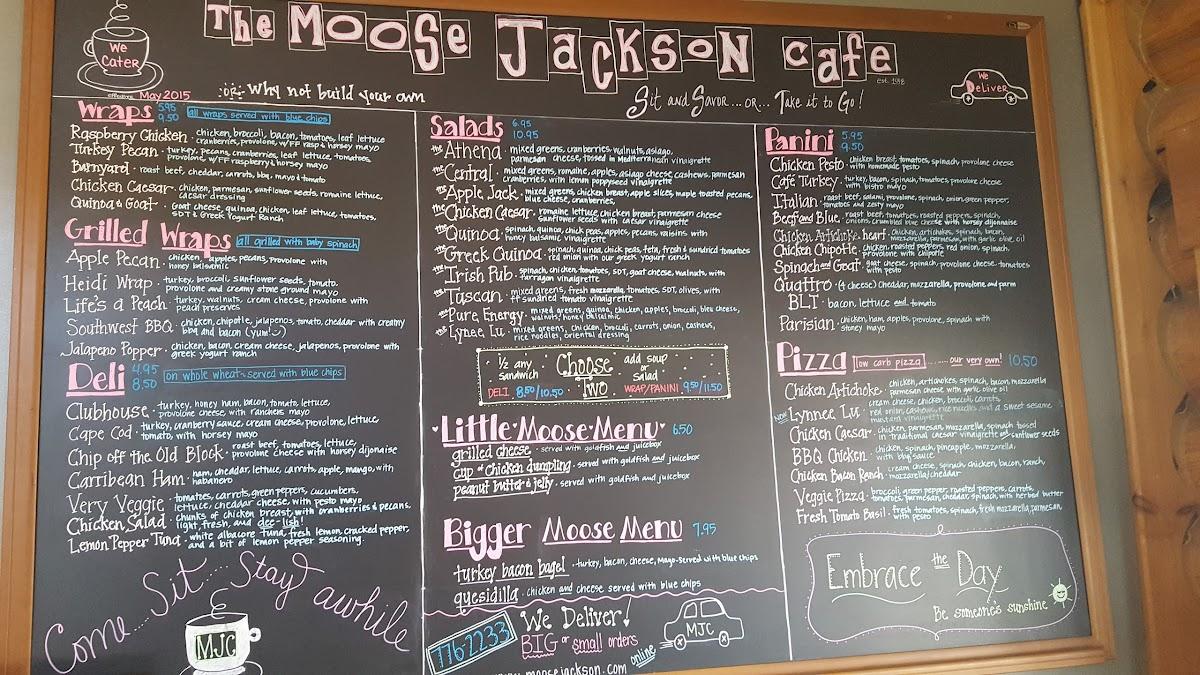 The Moose Jackson Cafe
est. 1998
We Cater
We Deliver
effective May 2015
..or.. Why not build your own
Sit and Savor...or... Take it to Go!
Wraps 5.95 9.50 all wraps served with blue chips
Raspberry Chicken · chicken, broccoli, bacon, tomatoes, leaf lettuce
cranberries, provolone, w/FF rasp & horsey mayo
Turkey Pecan · turkey, pecans, cranberries, leaf lettuce, tomatoes,
provolone, w/FF raspberry & horsey mayo
Barnyard · roast beef, cheddar, carrots, bbq, mayo & tomato
Chicken Caesar · chicken, parmesan, sunflower seeds, romaine lettuce,
caesar dressing
Quinoa & Goat · Goat cheese, quinoa, chicken, leaf lettuce, tomatoes,
SDT & Greek Yogurt Ranch
Grilled Wraps all grilled with baby spinach
Apple Pecan · chicken, apples, pecans, provolone with
honey balsamic
Heidi Wrap · turkey, broccoli, sunflower seeds, tomato,
provolone and creamy stone ground mayo
Life's a Peach · turkey, walnuts, cream cheese, provolone with
peach preserves
Southwest BBQ · chicken, chipotle, jalapenos, tomato, cheddar with creamy
bbq and bacon (yum! :)
Jalapeno Popper · chicken, bacon, cream cheese, jalapenos, provolone with
greek yogurt ranch
Deli 4.95 8.50 on whole wheat - served with blue chips
Clubhouse · turkey, honey ham, bacon, tomato, lettuce,
provolone cheese with ranchers mayo
Cape Cod · turkey, cranberry sauce, cream cheese, provolone, lettuce,
tomato, with horsey mayo
Chip off the Old Block · roast beef, tomatoes, lettuce,
provolone cheese with horsey dijonaise
Carribean Ham · ham, cheddar, lettuce, carrots, apple, mango, with
habanero
Very Veggie · tomatoes, carrots, green peppers, cucumbers,
lettuce, cheddar cheese, with pesto mayo
Chicken Salad · chunks of chicken breast, with cranberries & pecans,
light, fresh, and dee-lish!
Lemon Pepper Tuna · white albacore tuna, fresh lemon, cracked pepper,
and a bit of lemon pepper seasoning.
Come...Sit.....Stay awhile
MJC
Salads 6.95 10.95
the Athena · mixed greens, cranberries, walnuts, asiago,
parmesan cheese, tossed in Mediterranean vinaigrette
the Central · mixed greens, romaine, apples, asiago cheese, cashews, parmesan
cranberries, with lemon poppyseed vinaigrette
the Apple Jack · mixed greens, chicken breast, apple slices, maple toasted pecans,
blue cheese, cranberries,
the Chicken Caesar · romaine lettuce, chicken breast, parmesan cheese
sunflower seeds with caesar vinaigrette
the Quinoa · spinach, quinoa, chick peas, apples, pecans, raisins with
honey balsamic vinaigrette
the Greek Quinoa · spinach, quinoa, chick peas, feta, fresh & sundried tomatoes
red onion with our greek yogurt ranch
the Irish Pub · spinach, chicken, tomatoes, SDT, goat cheese, walnuts, with
tarragon vinaigrette
the Tuscan · mixed greens, fresh mozzarella, tomatoes, SDT, olives, with
ff sundried tomato vinaigrette
the Pure Energy · mixed greens, quinoa, chicken, apples, broccoli, bleu cheese,
walnuts, honey balsamic
the Lynee Lu · mixed greens, chicken, broccoli, carrots, onion, cashews,
rice noodles, oriental dressing
1/2 any sandwich Choose Two add soup or salad
DELI 8.50/10.50 WRAP/PANINI 9.50/11.50
Little Moose Menu 6.50
grilled cheese · served with goldfish and juicebox
cup of chicken dumpling · served with goldfish and juicebox
peanut butter & jelly · served with goldfish and juicebox
Bigger Moose Menu 7.95
turkey bacon bagel · turkey, bacon, cheese, mayo-served with blue chips
quesidilla · chicken and cheese served with blue chips
776-2233
We Deliver!
BIG or small orders
MJC
www.moosejackson.com online
Panini 5.95 9.50
Chicken Pesto · chicken breast, tomatoes, spinach, provolone cheese
with homemade pesto
Café Turkey · turkey, bacon, spinach, tomatoes, provolone cheese
with bistro mayo
Italian · roast beef, salami, provolone, spinach, onion, green pepper,
tomatoes and zesty mayo
Beef and Blue · roast beef, tomatoes, roasted peppers, spinach,
onions, crumbled blue cheese with horsey dijonnaise
Chicken Artichoke heart · chicken, artichokes, spinach, bacon,
mozzarella, parmesan, with garlic olive oil
Chicken Chipotle · chicken, roasted peppers, red onion, spinach,
provolone with chipotle
Spinach and Goat · goat cheese, spinach, provolone cheese, tomatoes
with pesto
Quattro · (4 cheese) Cheddar, mozzarella, provolone and parm
BLT · bacon, lettuce and tomato
Parisian · chicken, ham, apples, provolone, spinach with
stoney mayo
Pizza low carb pizza ........our very own! 10.50
Chicken Artichoke · chicken, artichokes, spinach, bacon, mozzarella
parmesan cheese with garlic olive oil
New Lynnee Lu · cream cheese, chicken, broccoli, carrots,
red onion, cashews, rice noodles and a sweet sesame
mustard vinaigrette
Chicken Caesar · chicken, parmesan, mozzarella, spinach tossed
in traditional caesar vinaigrette and sunflower seeds
BBQ Chicken · chicken, spinach, pineapple, mozzarella,
with bbq sauce
Chicken Bacon Ranch · cream cheese, spinach, chicken, bacon, ranch,
mozzarella/cheddar
Veggie Pizza · broccoli, green pepper, roasted peppers, carrots,
tomatoes, parmesan, cheddar, spinach, with herbed butter
Fresh Tomato Basil · fresh tomatoes, spinach, fresh mozzarella, parmesan,
with pesto
Embrace the Day
Be someone's sunshine